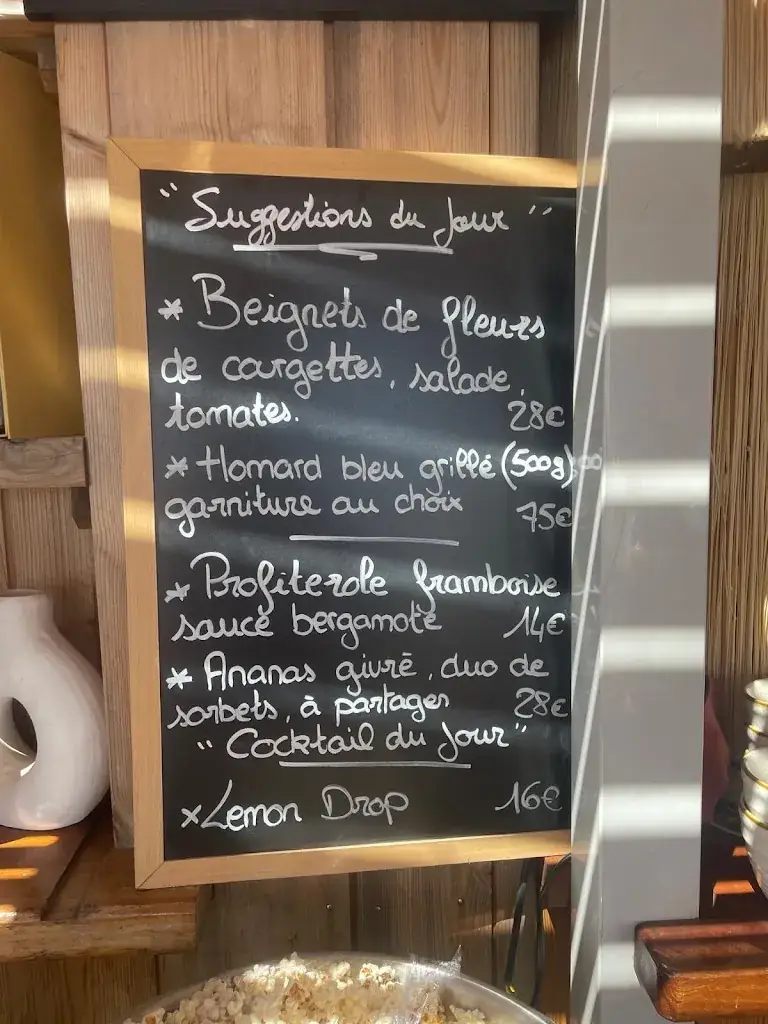 " Suggestions du Jour "
* Beignets de fleurs
de courgettes, salade,
tomates. 28€
* Homard bleu grillé (500g)
garniture au choix 75€
* Profiterole framboise
sauce bergamote 14€
* Ananas givré, duo de
sorbets, à partager 28€
" Cocktail du Jour "
× Lemon Drop 16€